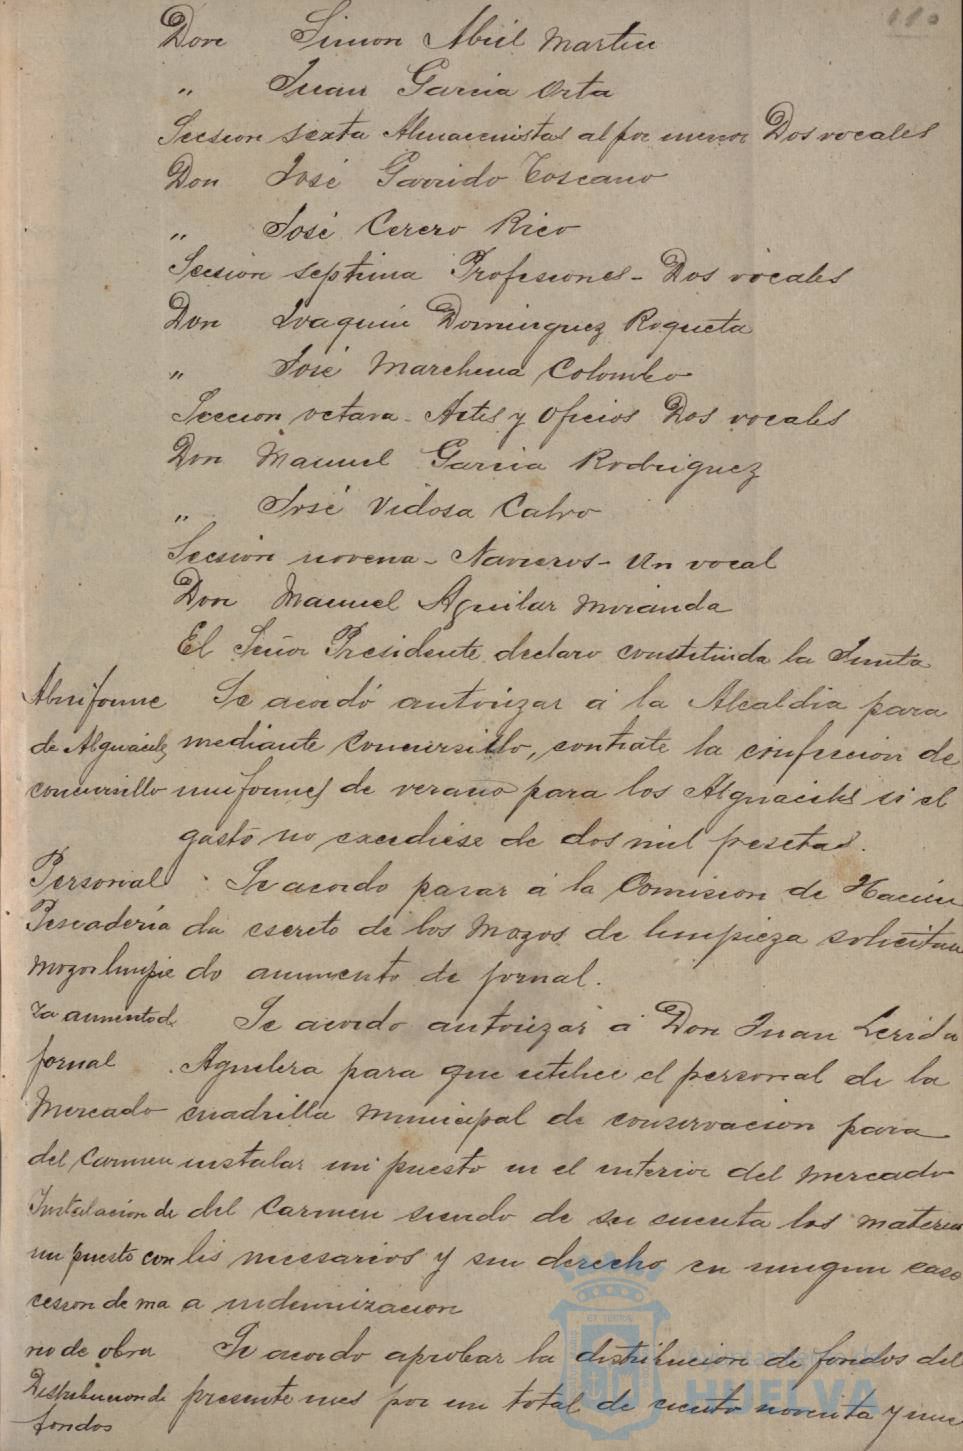 110
Don Simon Abril Martin
" Juan Garcia Orta
Seccion sexta Almacenistas al por menor Dos vocales
Don José Garrido Toscano
" José Cerero Rico
Sección septima Profesiones - Dos vocales
Don Joaquin Dominguez Roqueta
" José Marchena Colombo
Seccion octava - Artes y Oficios Dos vocales
Don Manuel Garcia Rodriguez
" José Vidosa Calvo
Sección novena - Navieros - Un vocal
Don Manuel Aguilar Miranda
El Señor Presidente declaro constituida la Junta
Se acordó autorizar á la Alcaldia para
mediante concursillo, contrate la confeccion de
uniformes de verano para los Alguaciles si el
gasto no excediese de dos mil pesetas.
Se acordo pasar á la Comision de Hacien
da escrito de los Mozos de limpieza solicitan
do aumento de jornal.
Se acordo autorizar á Don Juan Lerida
Aguilera para que utilice el personal de la
cuadrilla municipal de conservacion para
instalar un puesto en el interior del mercado
del Carmen siendo de su cuenta los materia
les necesarios y sin derecho en ningun caso
a indemnizacion
Se acordo aprobar la distribucion de fondos del
presente mes por un total de ciento noventa y nue
uniforme
de Alguaciles
concursillo
Personal
Pescadería
Mozos limpie
za aumento de
jornal
Mercado
del Carmen
Instalacion de
un puesto con
cesion de ma
no de obra
Distribucion de
fondos
HUELVA